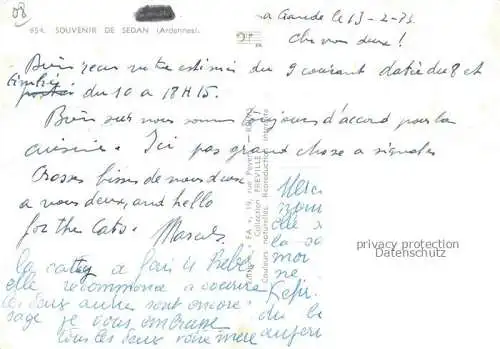 08
954. SOUVENIR DE SEDAN (Ardennes).
le 13-2-73
Chers vous deux !
Bien reçu votre estimée du 9 courant datée du 8 et
timbrée du 10 à 18H15.
Bien sûr nous sommes toujours d'accord pour la
cuisine. Ici pas grand chose à signaler
Grosses bises de nous deux
à vous deux, and hello
for the cats. Marcel
la a fait 4 bébé
elle recommence à courir
les deux autres sont encore
sage je vous embrasse
tous les deux votre mère
Collection FREVILLE
Couleurs naturelles Reproduction interdite
Merci
la
ne
Kefir
du
privacy protection
Datenschutz